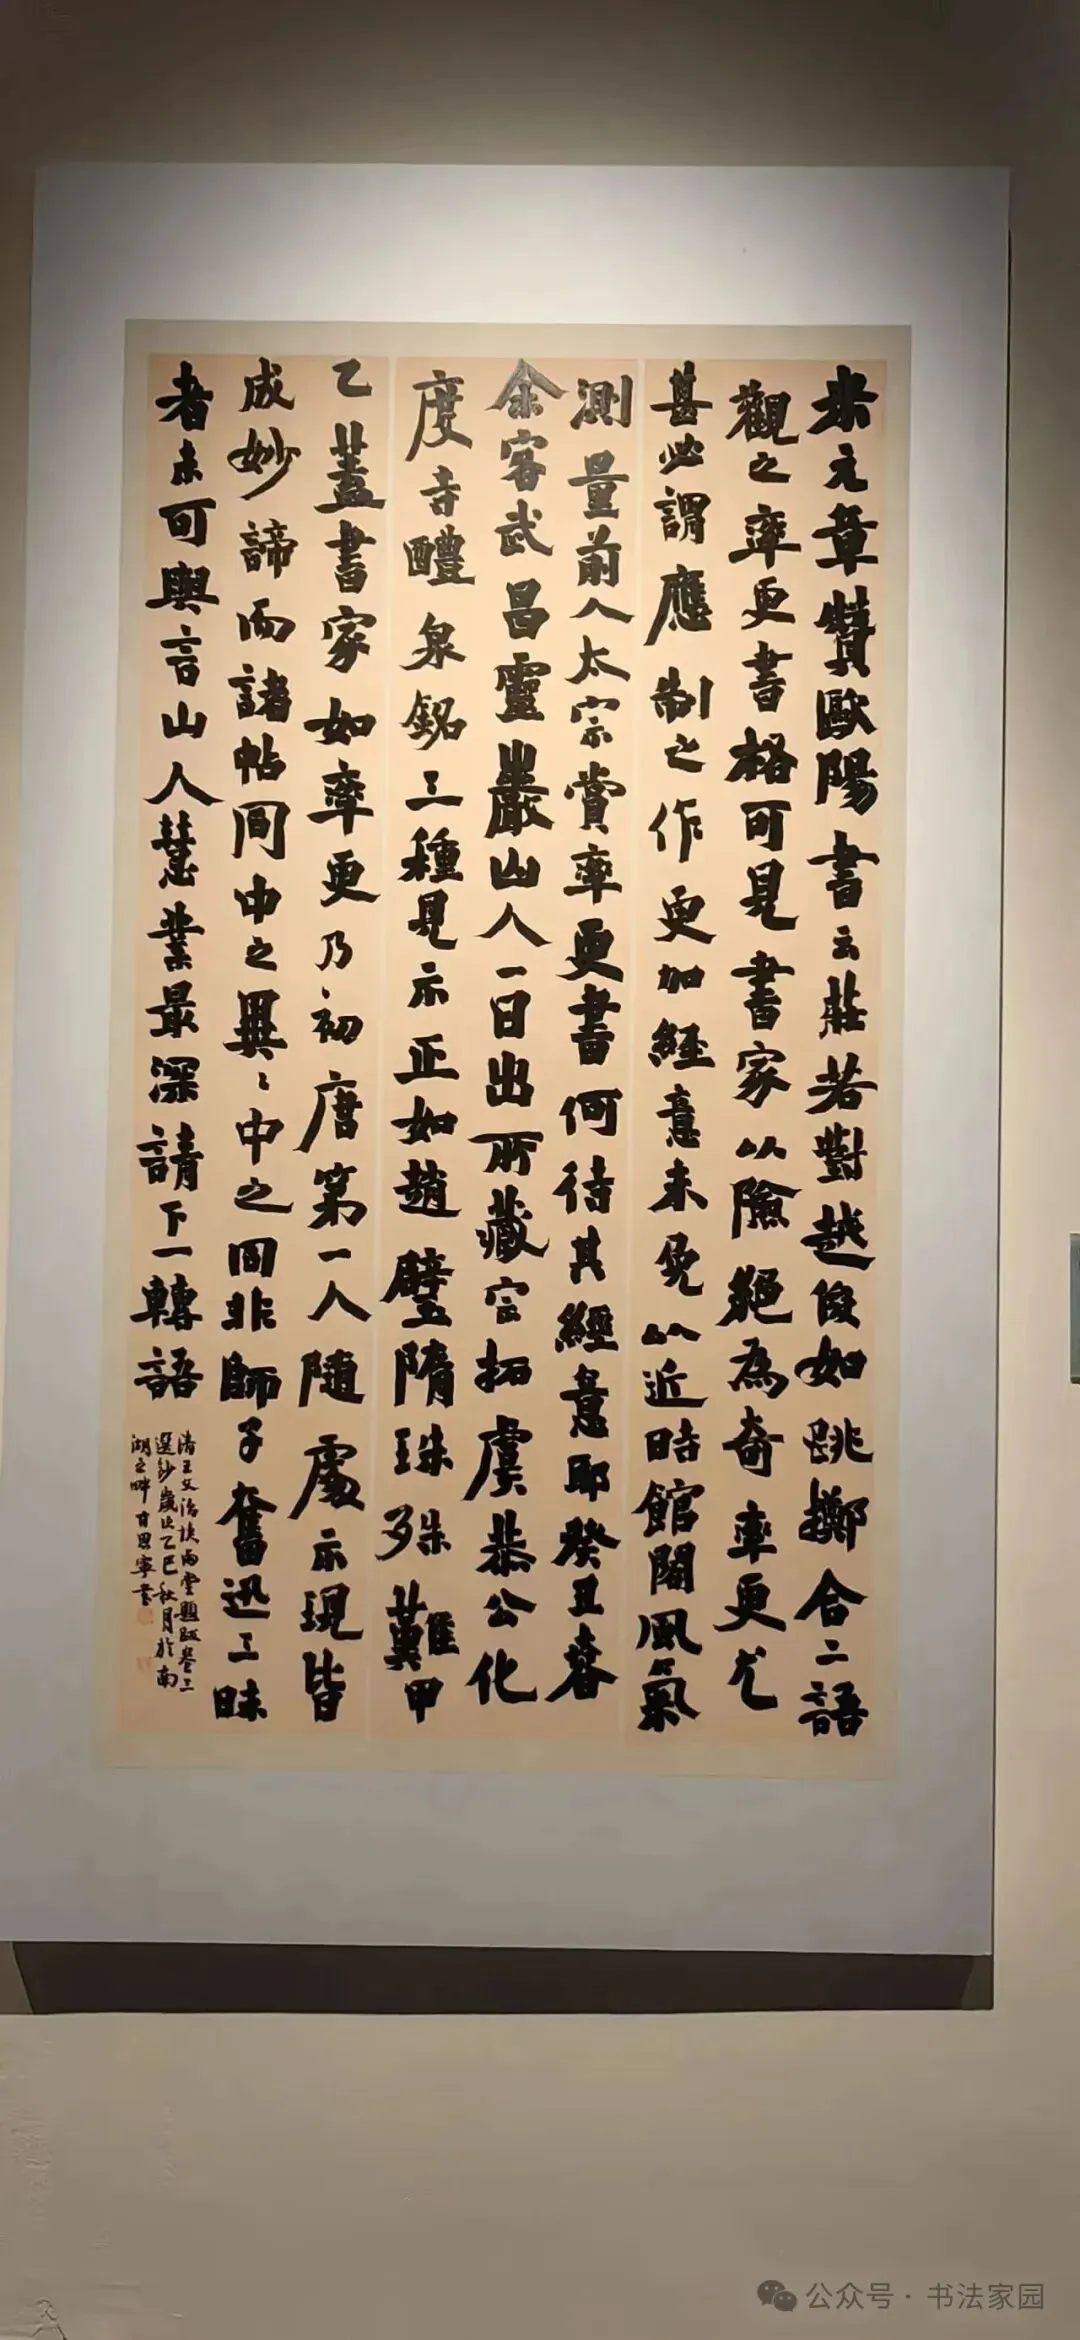 米元章贊歐陽書云莊若對越俊如跳擲合二語
觀之率更書格可見書家以險絕為奇率更尤
甚必謂應制之作更加經意未免以近時館閣風氣
測量前人太宗賞率更書何待其經意耶癸丑春
余客武昌靈巖山人一日出所藏宋拓虞恭公化
度寺醴泉銘三種見示正如趙璧隋珠殊難甲
乙蓋書家如率更乃初唐第一人隨處示現皆
成妙諦而諸帖同中之異〻中之同非師子奮迅三昧
者未可與言山人慧業最深請下一轉語
清王文治快雨堂題跋卷三
選鈔歲次乙巳秋月於南
湖之畔甘思寧書
公众号·书法家园